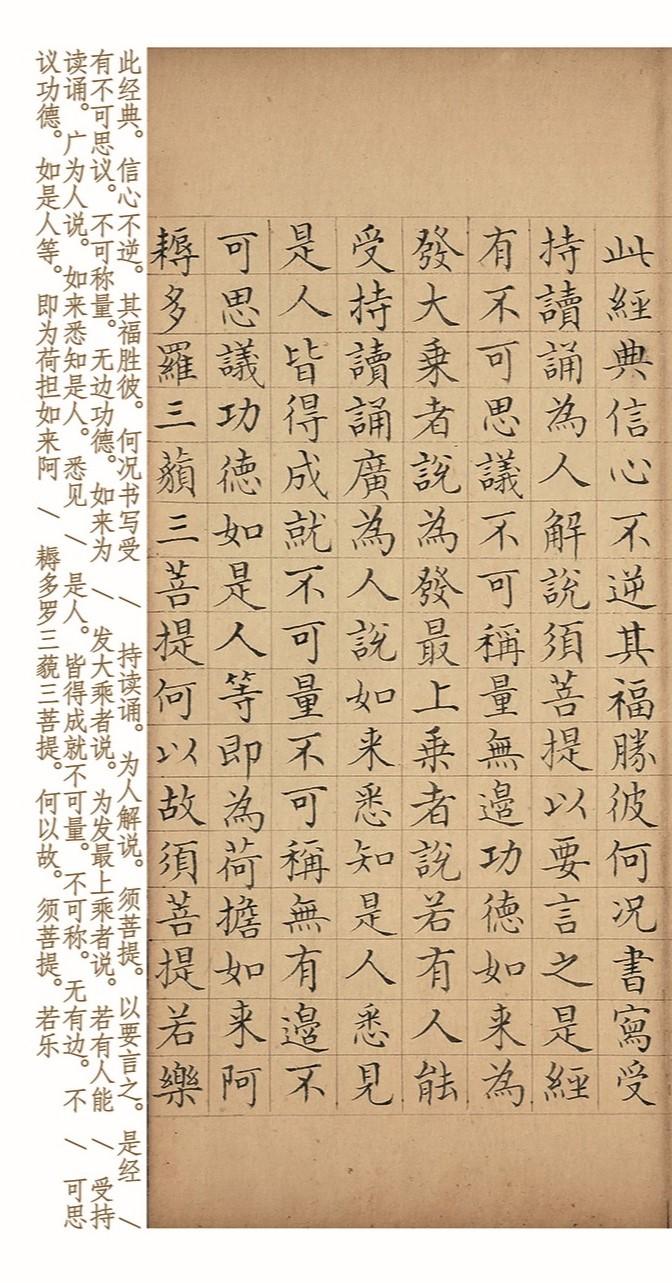 此經典信心不逆其福勝彼何况書寫受
持讀誦為人解說須菩提以要言之是經
有不可思議不可稱量無邊功德如来為
發大乗者說為發最上乗者說若有人能
受持讀誦廣為人說如来悉知是人悉見
是人皆得成就不可量不可稱無有邊不
可思議功德如是人等即為荷擔如来阿
耨多羅三藐三菩提何以故須菩提若樂
此经典。信心不逆。其福胜彼。何况书写受 / 持读诵。为人解说。须菩提。以要言之。是经 /
有不可思议。不可称量。无边功德。如来为 / 发大乘者说。为发最上乘者说。若有人能 / 受持
读诵。广为人说。如来悉知是人。悉见 / 是人。皆得成就不可量。不可称。无有边。不 / 可思
议功德。如是人等。即为荷担如来阿 / 耨多罗三藐三菩提。何以故。须菩提。若乐